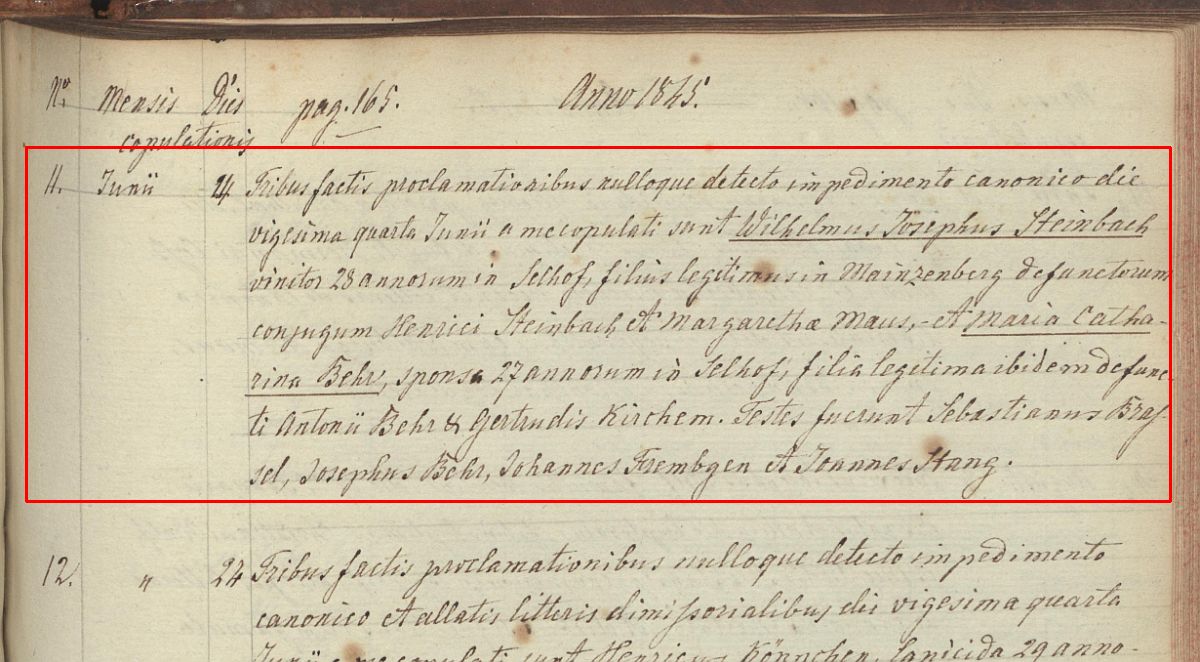 No. Mensis Dies pag. 165. Anno 1845.
copulationis
11. Junii 24 Tribus factis proclamationibus nulloque detecto impedimento canonico die
vigesima quarta Junii a me copulati sunt Wilhelmus Josephus Steinbach
vinitor 28 annorum in Selhof, filius legitimus in Mainzenberg defunctorum
conjugum Henrici Steinbach et Margarethæ Maus, - et Maria Catha-
rina Behr, sponsa 27 annorum in Selhof, filia legitima ibidem defunc-
ti Antonii Behr & Gertrudis Kirchem. Testes fuerunt Sebastianus Bras-
sel, Josephus Behr, Johannes Frembgen et Joannes Stang.
12. " 24 Tribus factis proclamationibus nulloque detecto impedimento
canonico et allatis litteris dimissorialibus, die vigesima quarta
Junii a me copulati sunt Henricus Könnchen, lanicida 29 anno-